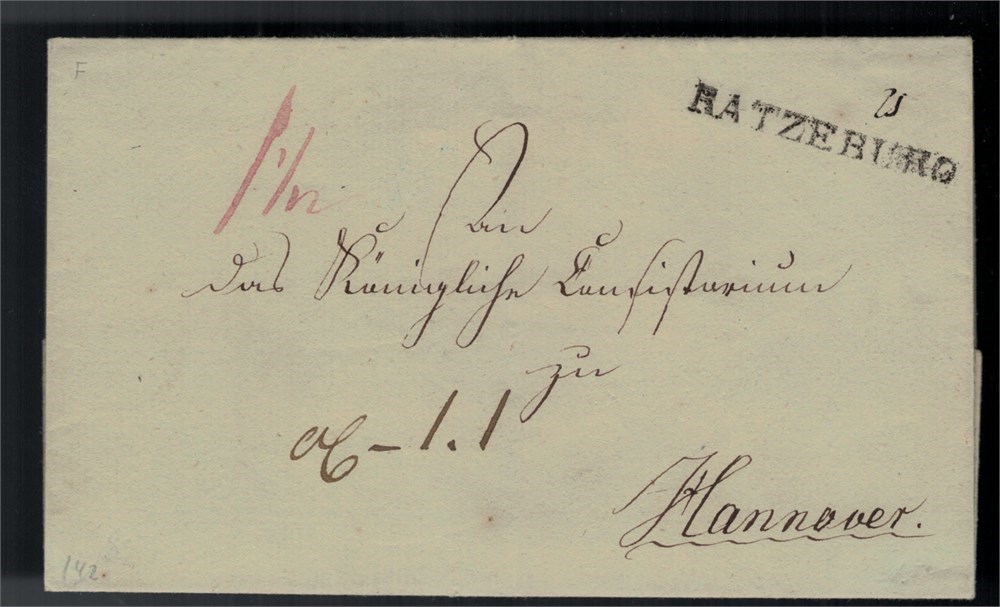 F
RATZEBURG
25
An
das Königliche Consistorium
zu
Hannover.
142